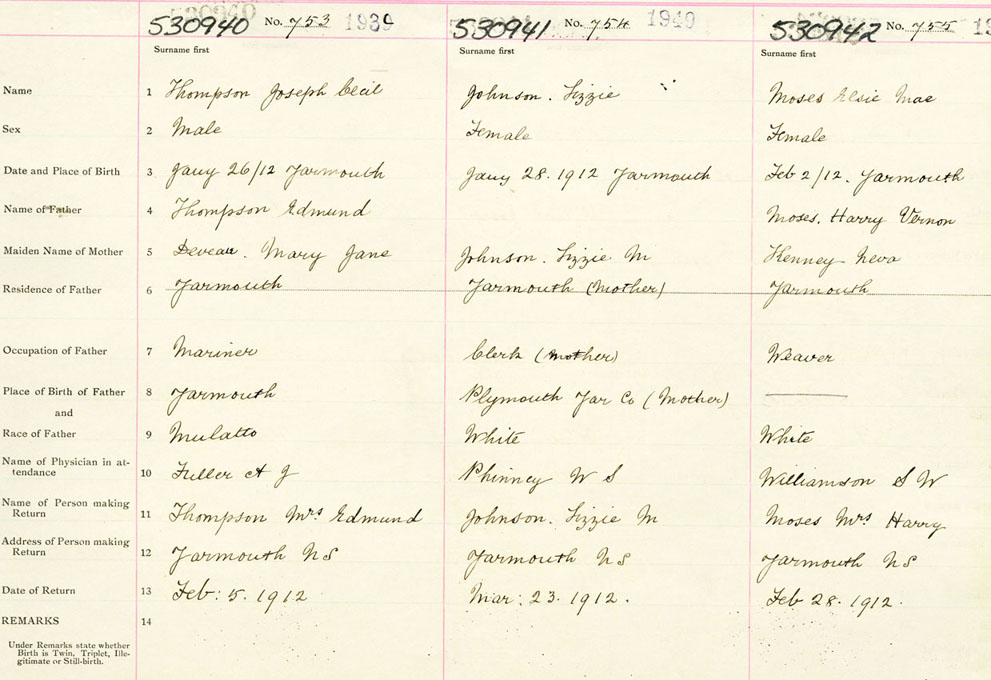 530940 No. 753 1939 530941 No. 754 1940 530942 No. 755
Surname first Surname first Surname first
Name 1 Thompson Joseph Cecil Johnson. Lizzie Moses Elsie Mae
Sex 2 Male Female Female
Date and Place of Birth 3 Jany 26/12 Yarmouth Jany 28. 1912 Yarmouth Feb 2/12. Yarmouth
Name of Father 4 Thompson Edmund Moses. Harry Vernon
Maiden Name of Mother 5 Deveau. Mary Jane Johnson. Lizzie M Kenney Neva
Residence of Father 6 Yarmouth Yarmouth (Mother) Yarmouth
Occupation of Father 7 Mariner Clerk (Mother) Weaver
Place of Birth of Father 8 Yarmouth Plymouth Yar Co (Mother)
and
Race of Father 9 Mulatto White White
Name of Physician in at-
tendance 10 Fuller A J Phinney W S Williamson S W
Name of Person making
Return 11 Thompson Mrs Edmund Johnson. Lizzie M Moses Mrs Harry
Address of Person making
Return 12 Yarmouth NS Yarmouth NS Yarmouth NS
Date of Return 13 Feb: 5. 1912 Mar: 23. 1912. Feb 28. 1912.
REMARKS 14
Under Remarks state whether
Birth is Twin, Triplet, Ille-
gitimate or Still-birth.